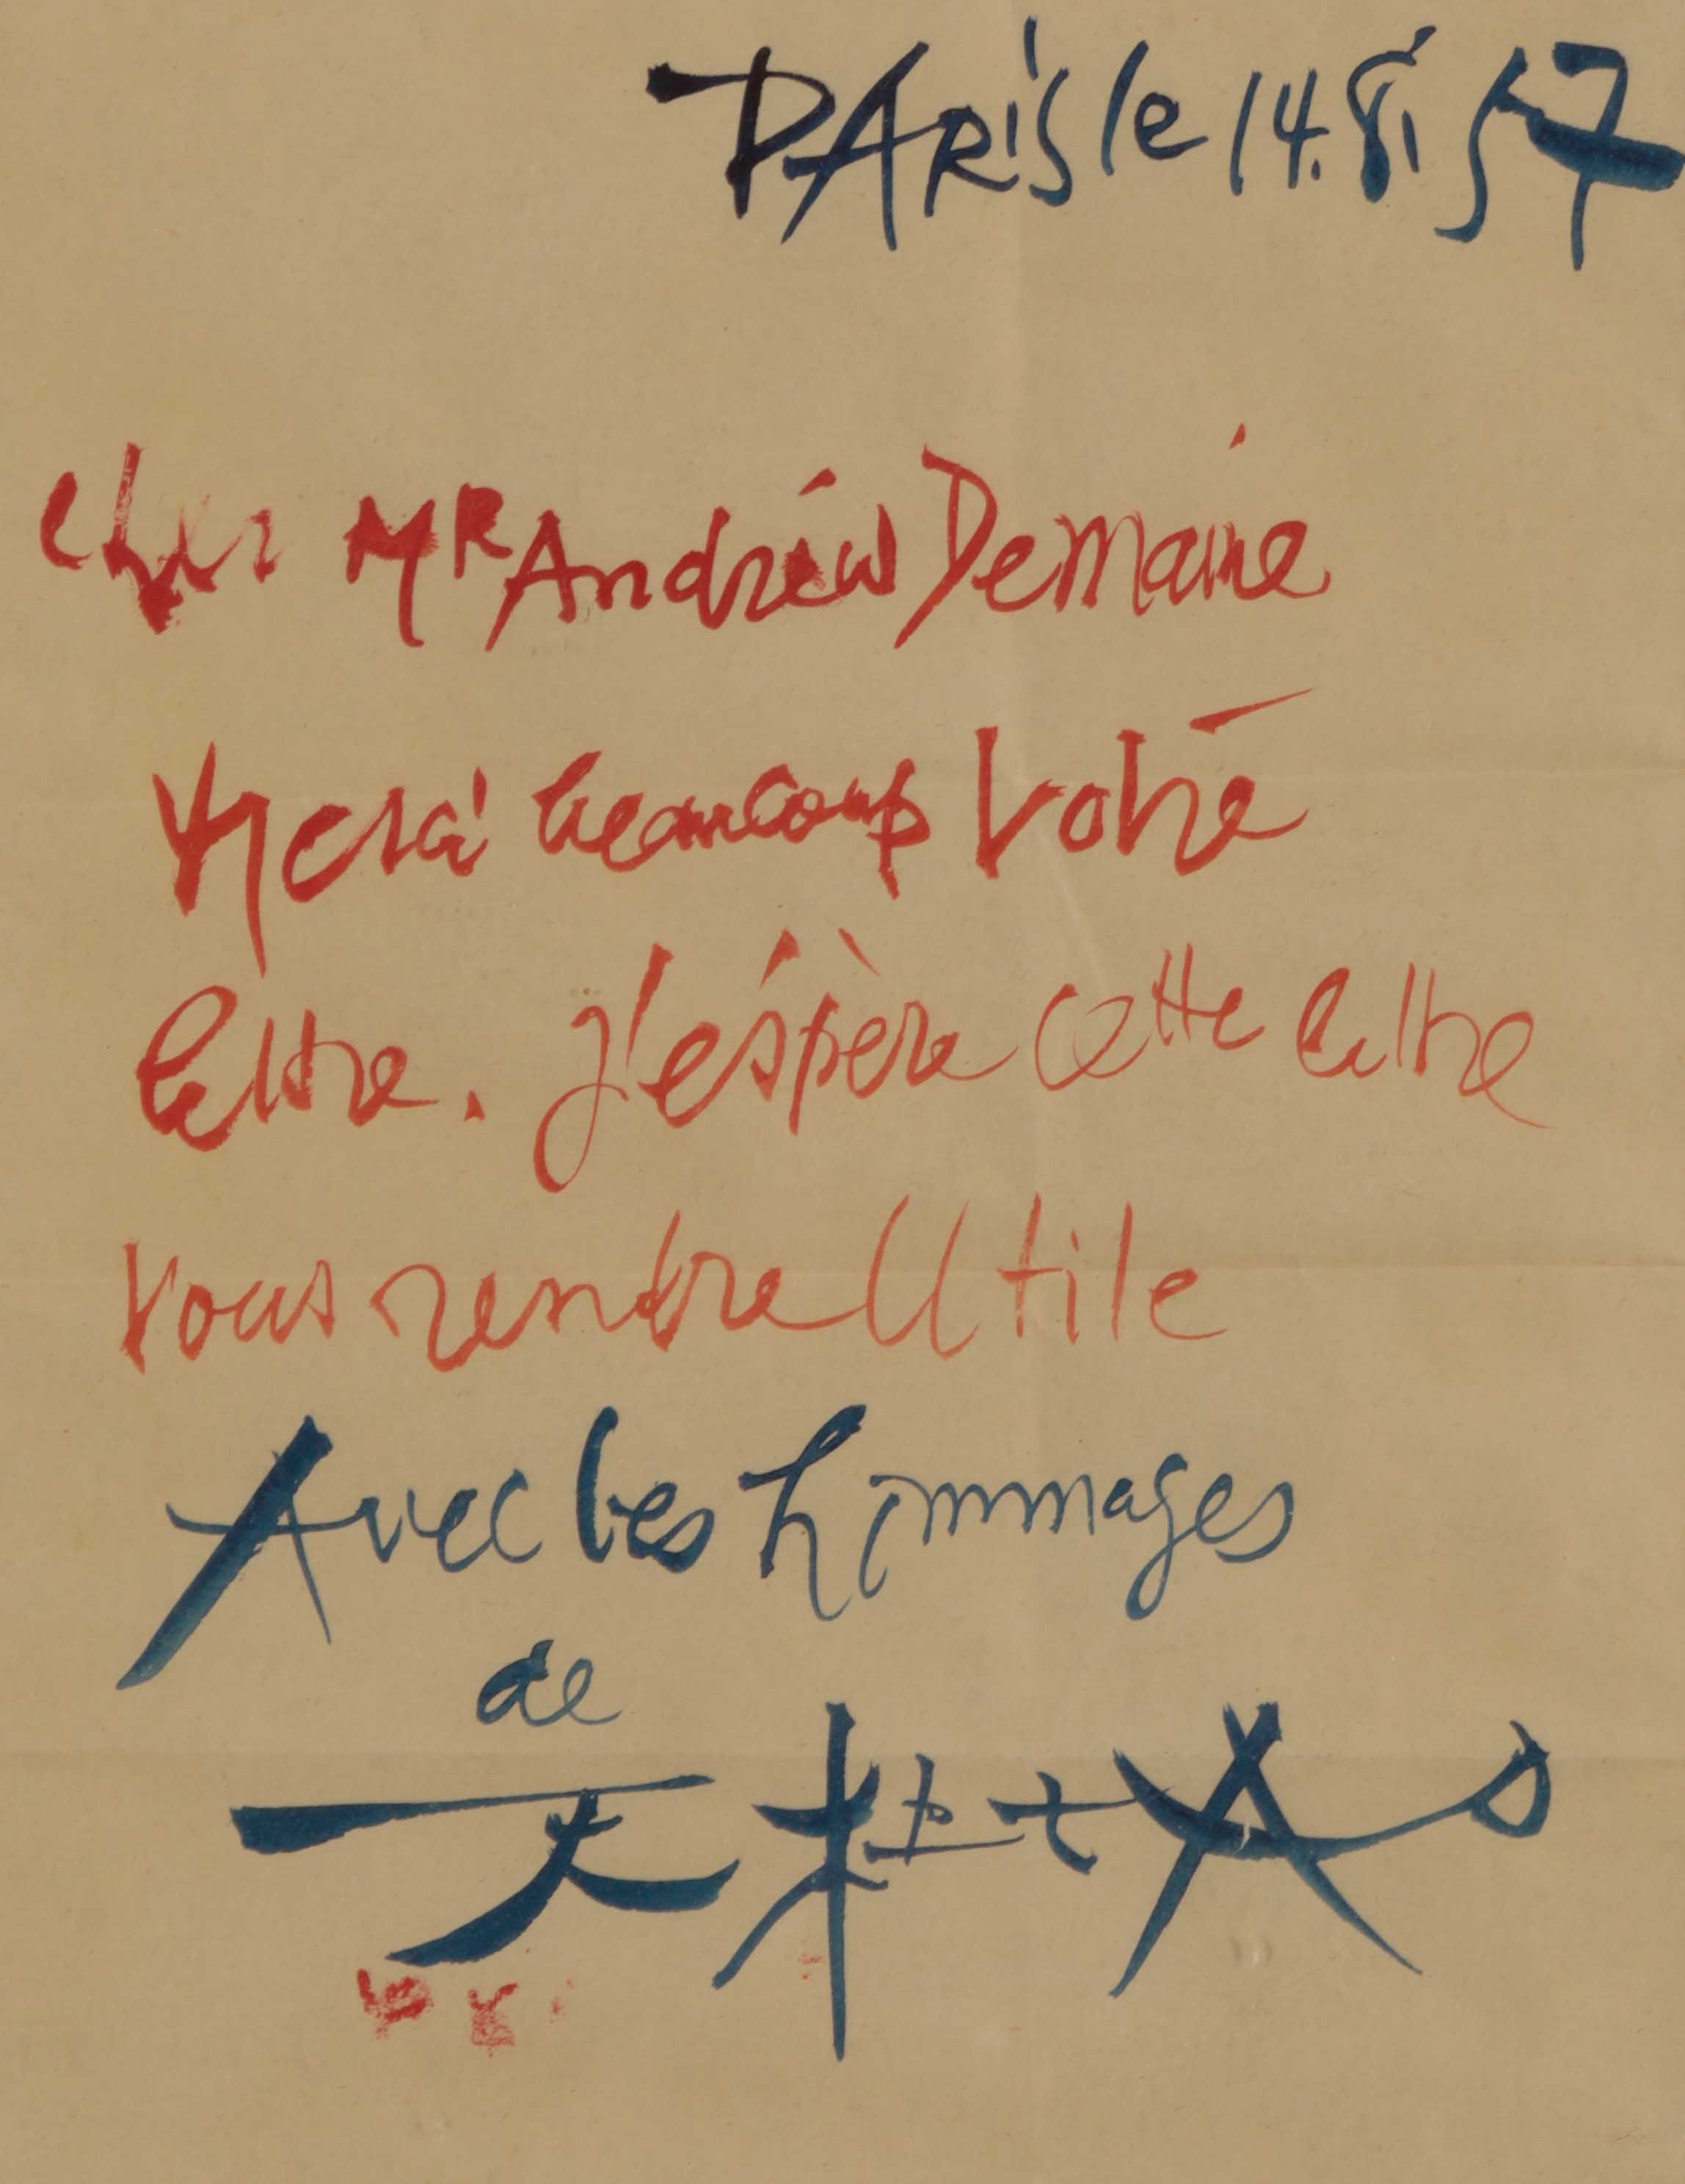 PARis le 14.8.57
cher MR Andréw Demaine
Merci beaucoup Votré
lettre. J'éspère cette lettre
Vous rendre Utile
Avec les hommages
de